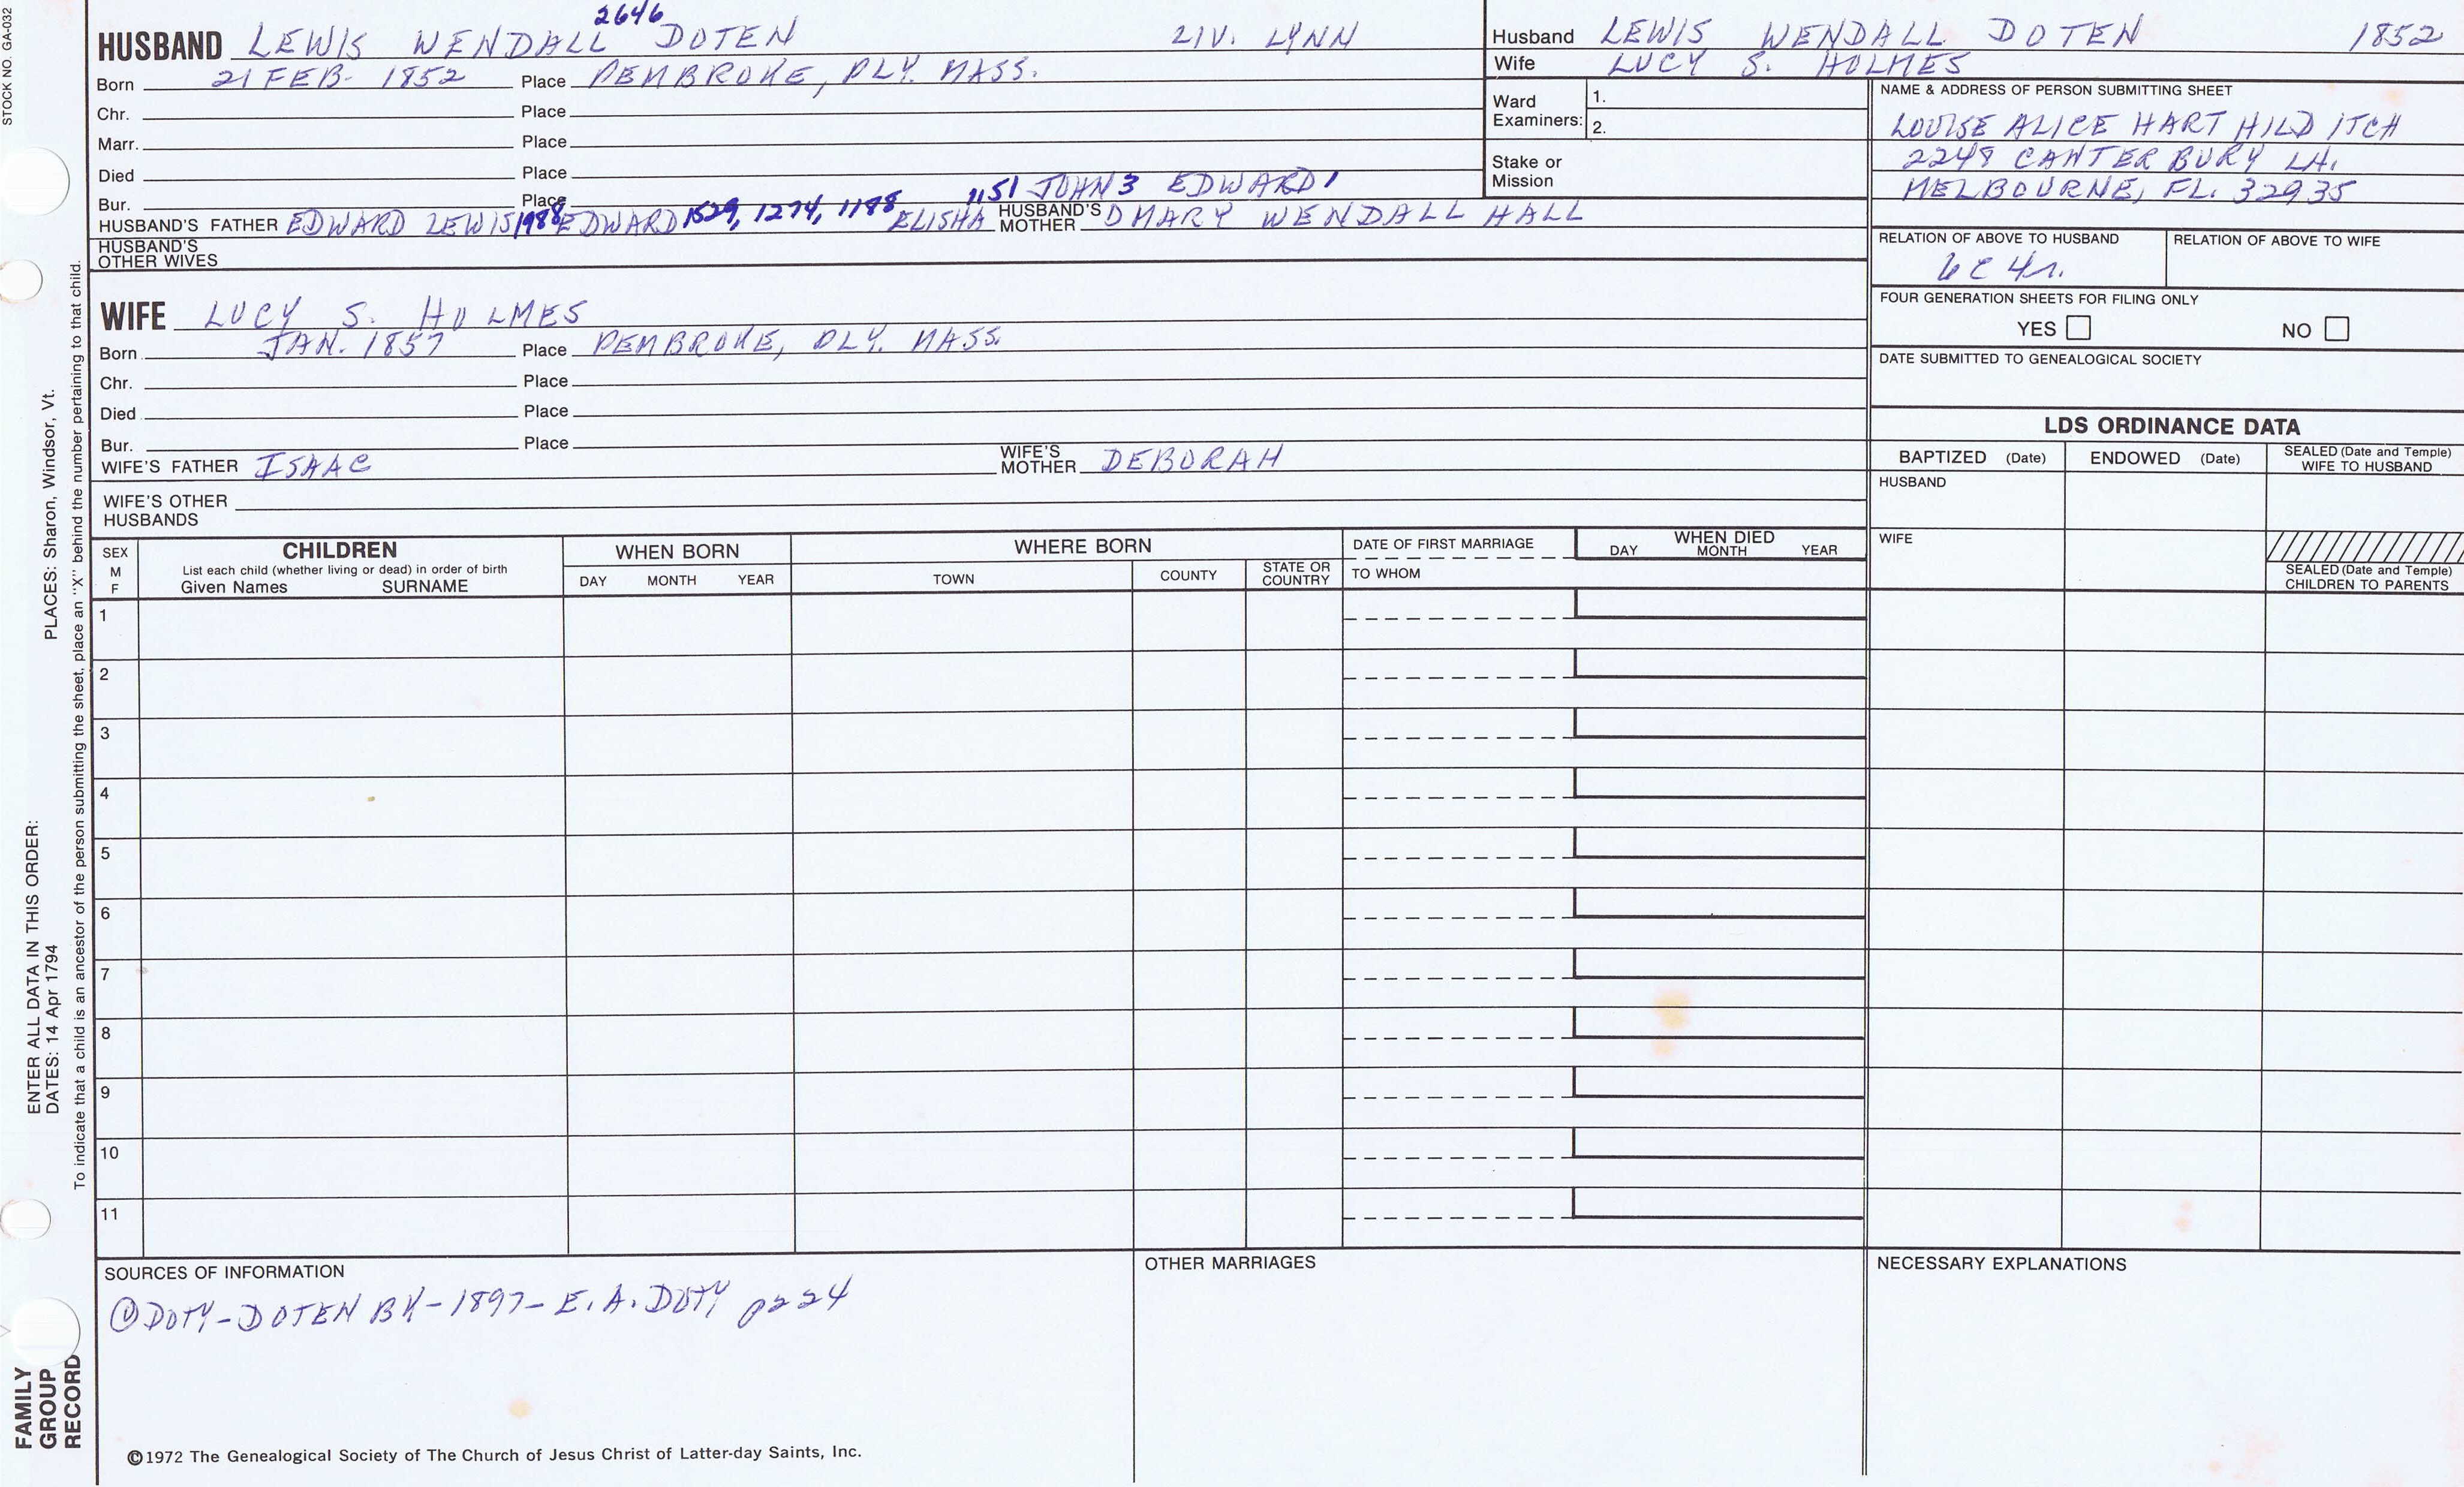 STOCK NO. GA-032
2646
HUSBAND LEWIS WENDALL DOTEN LIV. LYNN
Born 21 FEB. 1852 Place PEMBROKE, PLY. MASS.
Chr. Place
Marr. Place
Died Place
Bur. Place 1151 JOHN 3 EDWARD 1
HUSBAND'S FATHER EDWARD LEWIS 1988 EDWARD 1529, 1274, 1188 ELISHA HUSBAND'S MOTHER DMARY WENDALL HALL
HUSBAND'S
OTHER WIVES
WIFE LUCY S. HOLMES
Born JAN. 1857 Place PEMBROKE, PLY. MASS.
Chr. Place
Died Place
Bur. Place
WIFE'S FATHER ISAAC WIFE'S MOTHER DEBORAH
WIFE'S OTHER
HUSBANDS
Husband LEWIS WENDALL DOTEN 1852
Wife LUCY S. HOLMES
Ward
Examiners:
1.
2.
Stake or
Mission
NAME & ADDRESS OF PERSON SUBMITTING SHEET
LOUISE ALICE HART HILDITCH
2248 CANTERBURY LN.
MELBOURNE, FL. 32935
RELATION OF ABOVE TO HUSBAND RELATION OF ABOVE TO WIFE
6C 4r.
FOUR GENERATION SHEETS FOR FILING ONLY
YES NO
DATE SUBMITTED TO GENEALOGICAL SOCIETY
LDS ORDINANCE DATA
BAPTIZED (Date) ENDOWED (Date) SEALED (Date and Temple)
WIFE TO HUSBAND
HUSBAND
WIFE
SEALED (Date and Temple)
CHILDREN TO PARENTS
SEX
M
F
CHILDREN
List each child (whether living or dead) in order of birth
Given Names SURNAME
WHEN BORN
DAY MONTH YEAR
WHERE BORN
TOWN COUNTY STATE OR COUNTRY
DATE OF FIRST MARRIAGE
TO WHOM
WHEN DIED
DAY MONTH YEAR
1
2
3
4
5
6
7
8
9
10
11
SOURCES OF INFORMATION
① DOTY-DOTEN BK-1897-E.A. DOTY p224
OTHER MARRIAGES
NECESSARY EXPLANATIONS
©1972 The Genealogical Society of The Church of Jesus Christ of Latter-day Saints, Inc.
FAMILY
GROUP
RECORD
ENTER ALL DATA IN THIS ORDER:
DATES: 14 Apr 1794 PLACES: Sharon, Windsor, Vt.
To indicate that a child is an ancestor of the person submitting the sheet, place an "X" behind the number pertaining to that child.